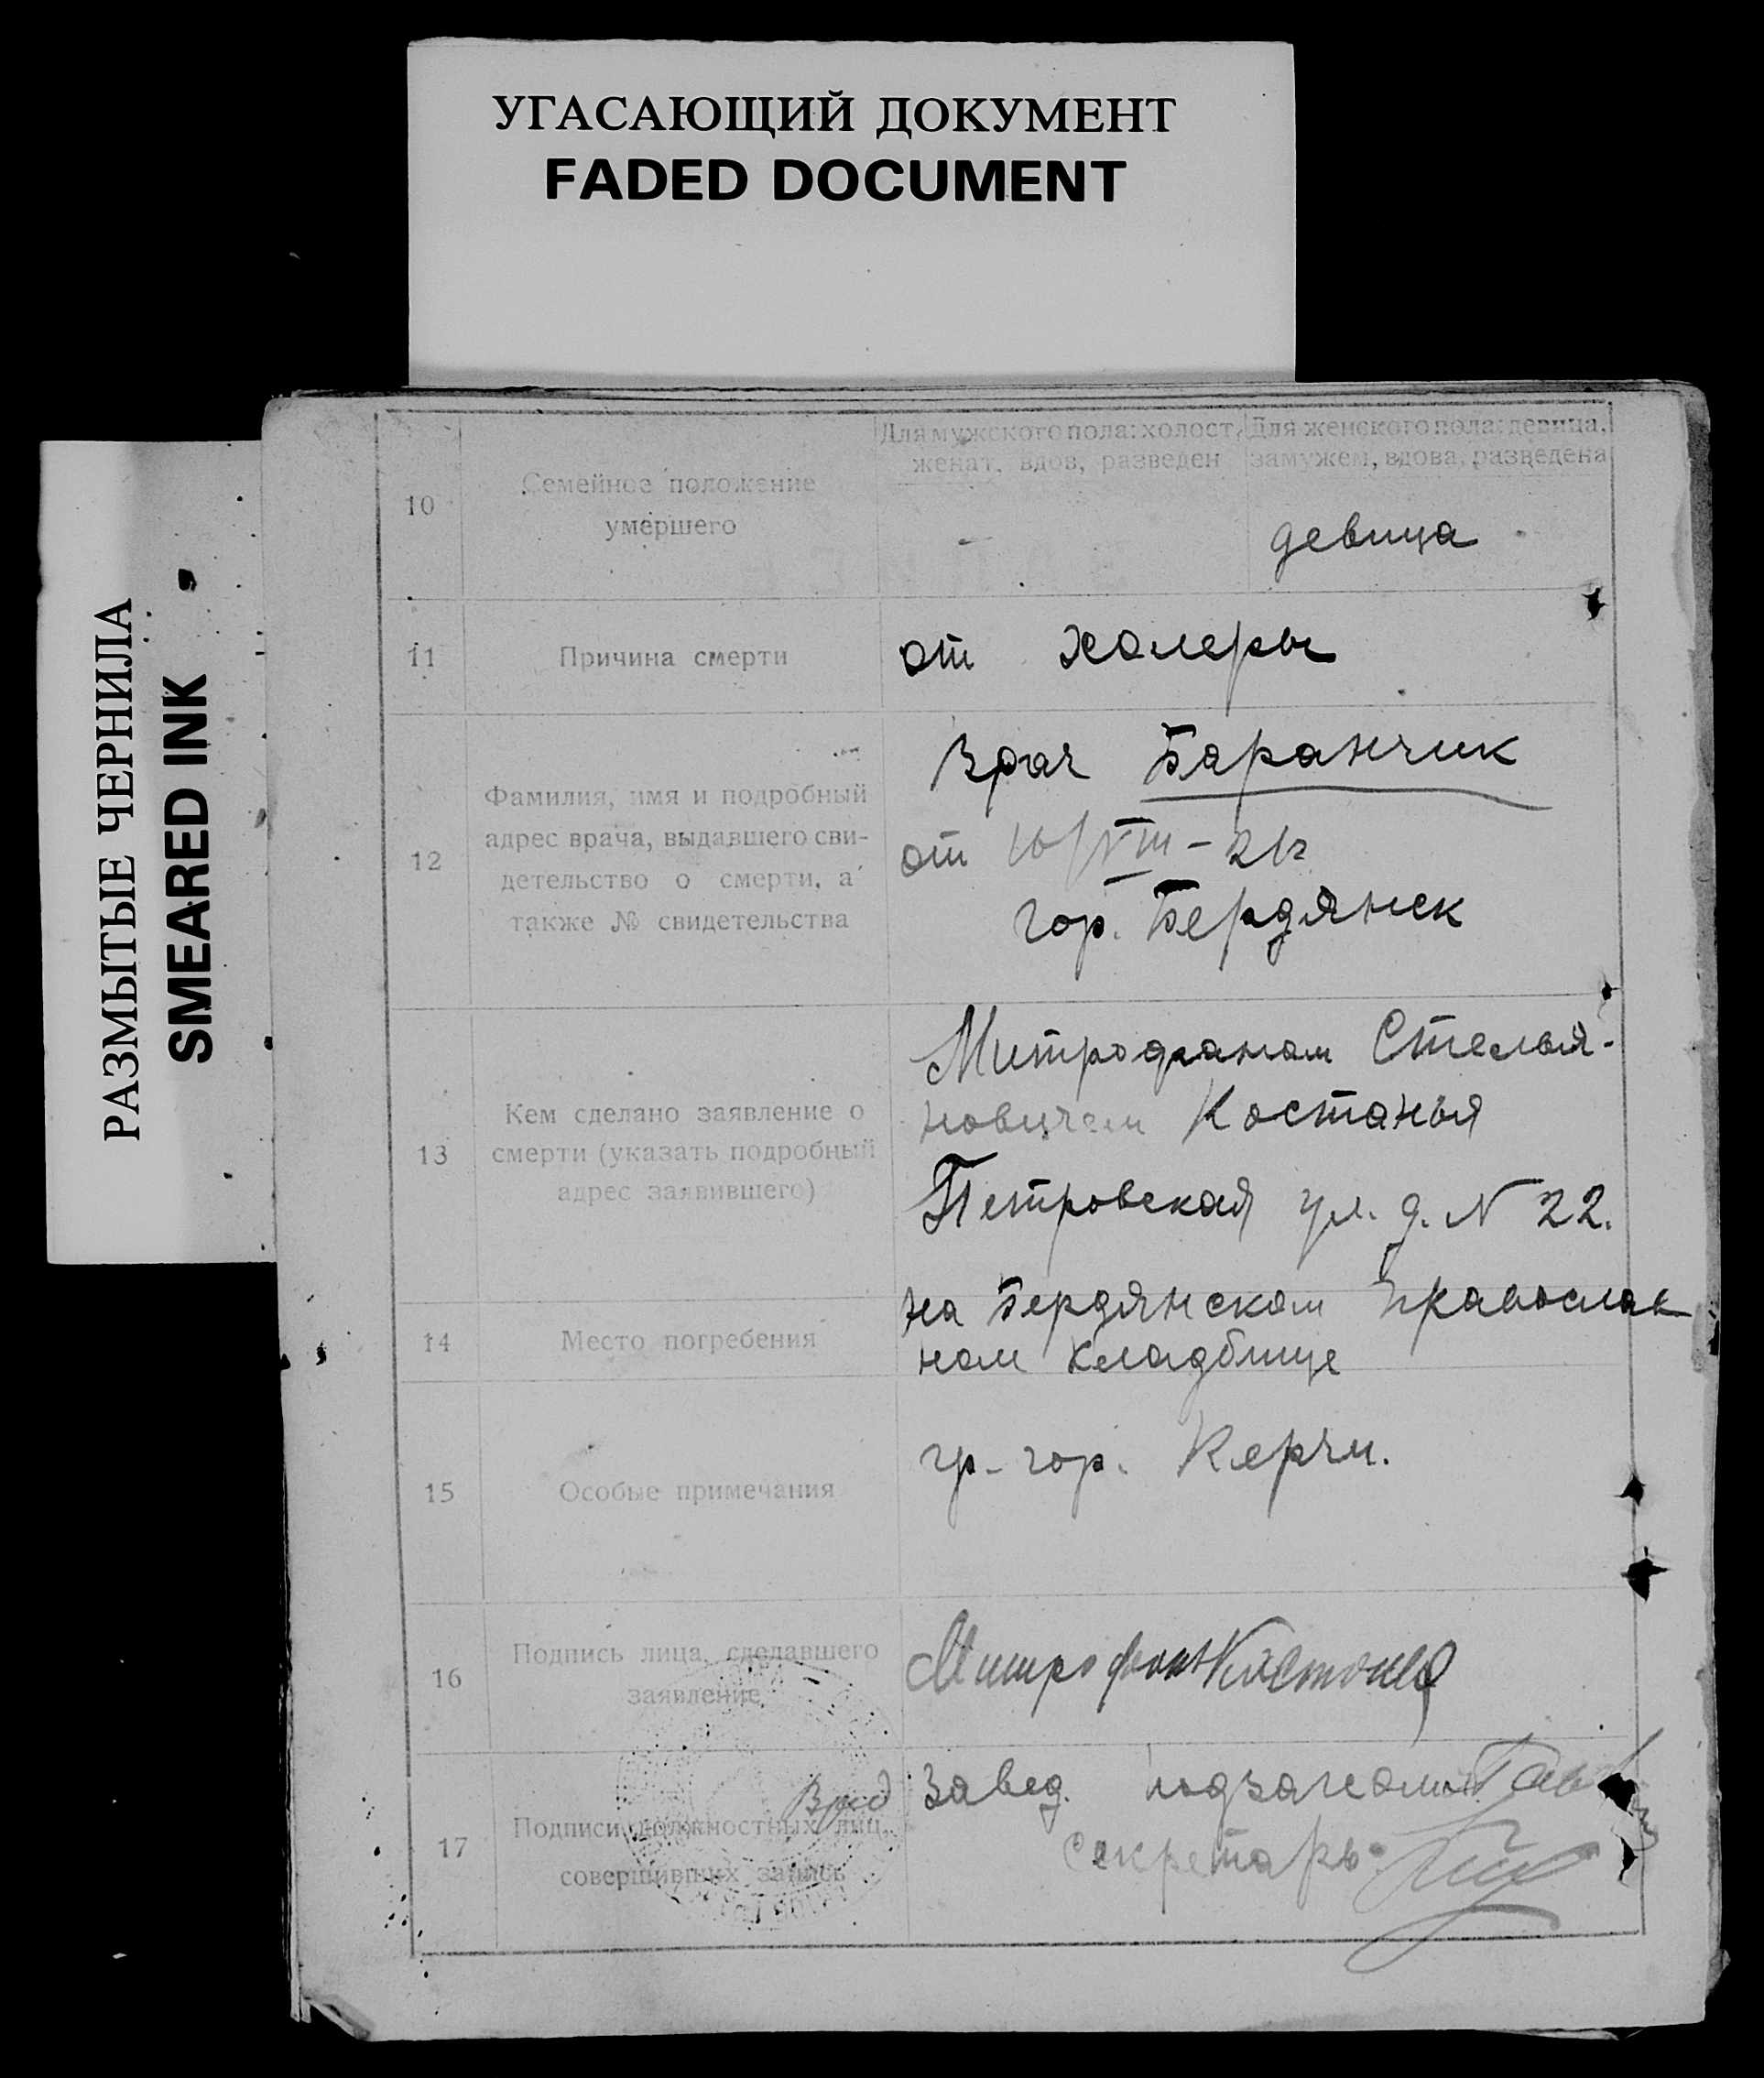 УГАСАЮЩИЙ ДОКУМЕНТ
FADED DOCUMENT
РАЗМЫТЫЕ ЧЕРНИЛА
SMEARED INK
10
Семейное положение
умершего
Для мужского пола: холост,
женат, вдов, разведен
Для женского пола: девица,
замужем, вдова, разведена
девица
11
Причина смерти
от холеры
12
Фамилия, имя и подробный
адрес врача, выдавшего сви-
детельство о смерти, а
также № свидетельства
Врач Баранчик
от 10/VIII - 21г.
гор. Бердянск
13
Кем сделано заявление о
смерти (указать подробный
адрес заявившего)
Митрофаном Стелья-
новичем Костанья
Петровская ул. д. N 22.
14
Место погребения
на Бердянском православ
ном кладбище
15
Особые примечания
гр- гор. Керчи.
16
Подпись лица, сделавшего
заявление
Митрофан Костанья
17
Подписи должностных лиц,
совершивших запись
Врид Завед. подзагсом
Секретарь